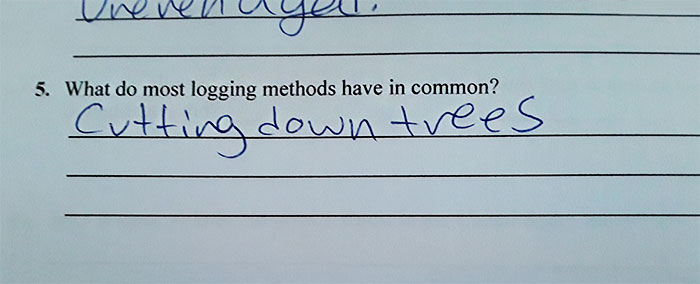 Uneven aged.
5. What do most logging methods have in common?
Cutting down trees